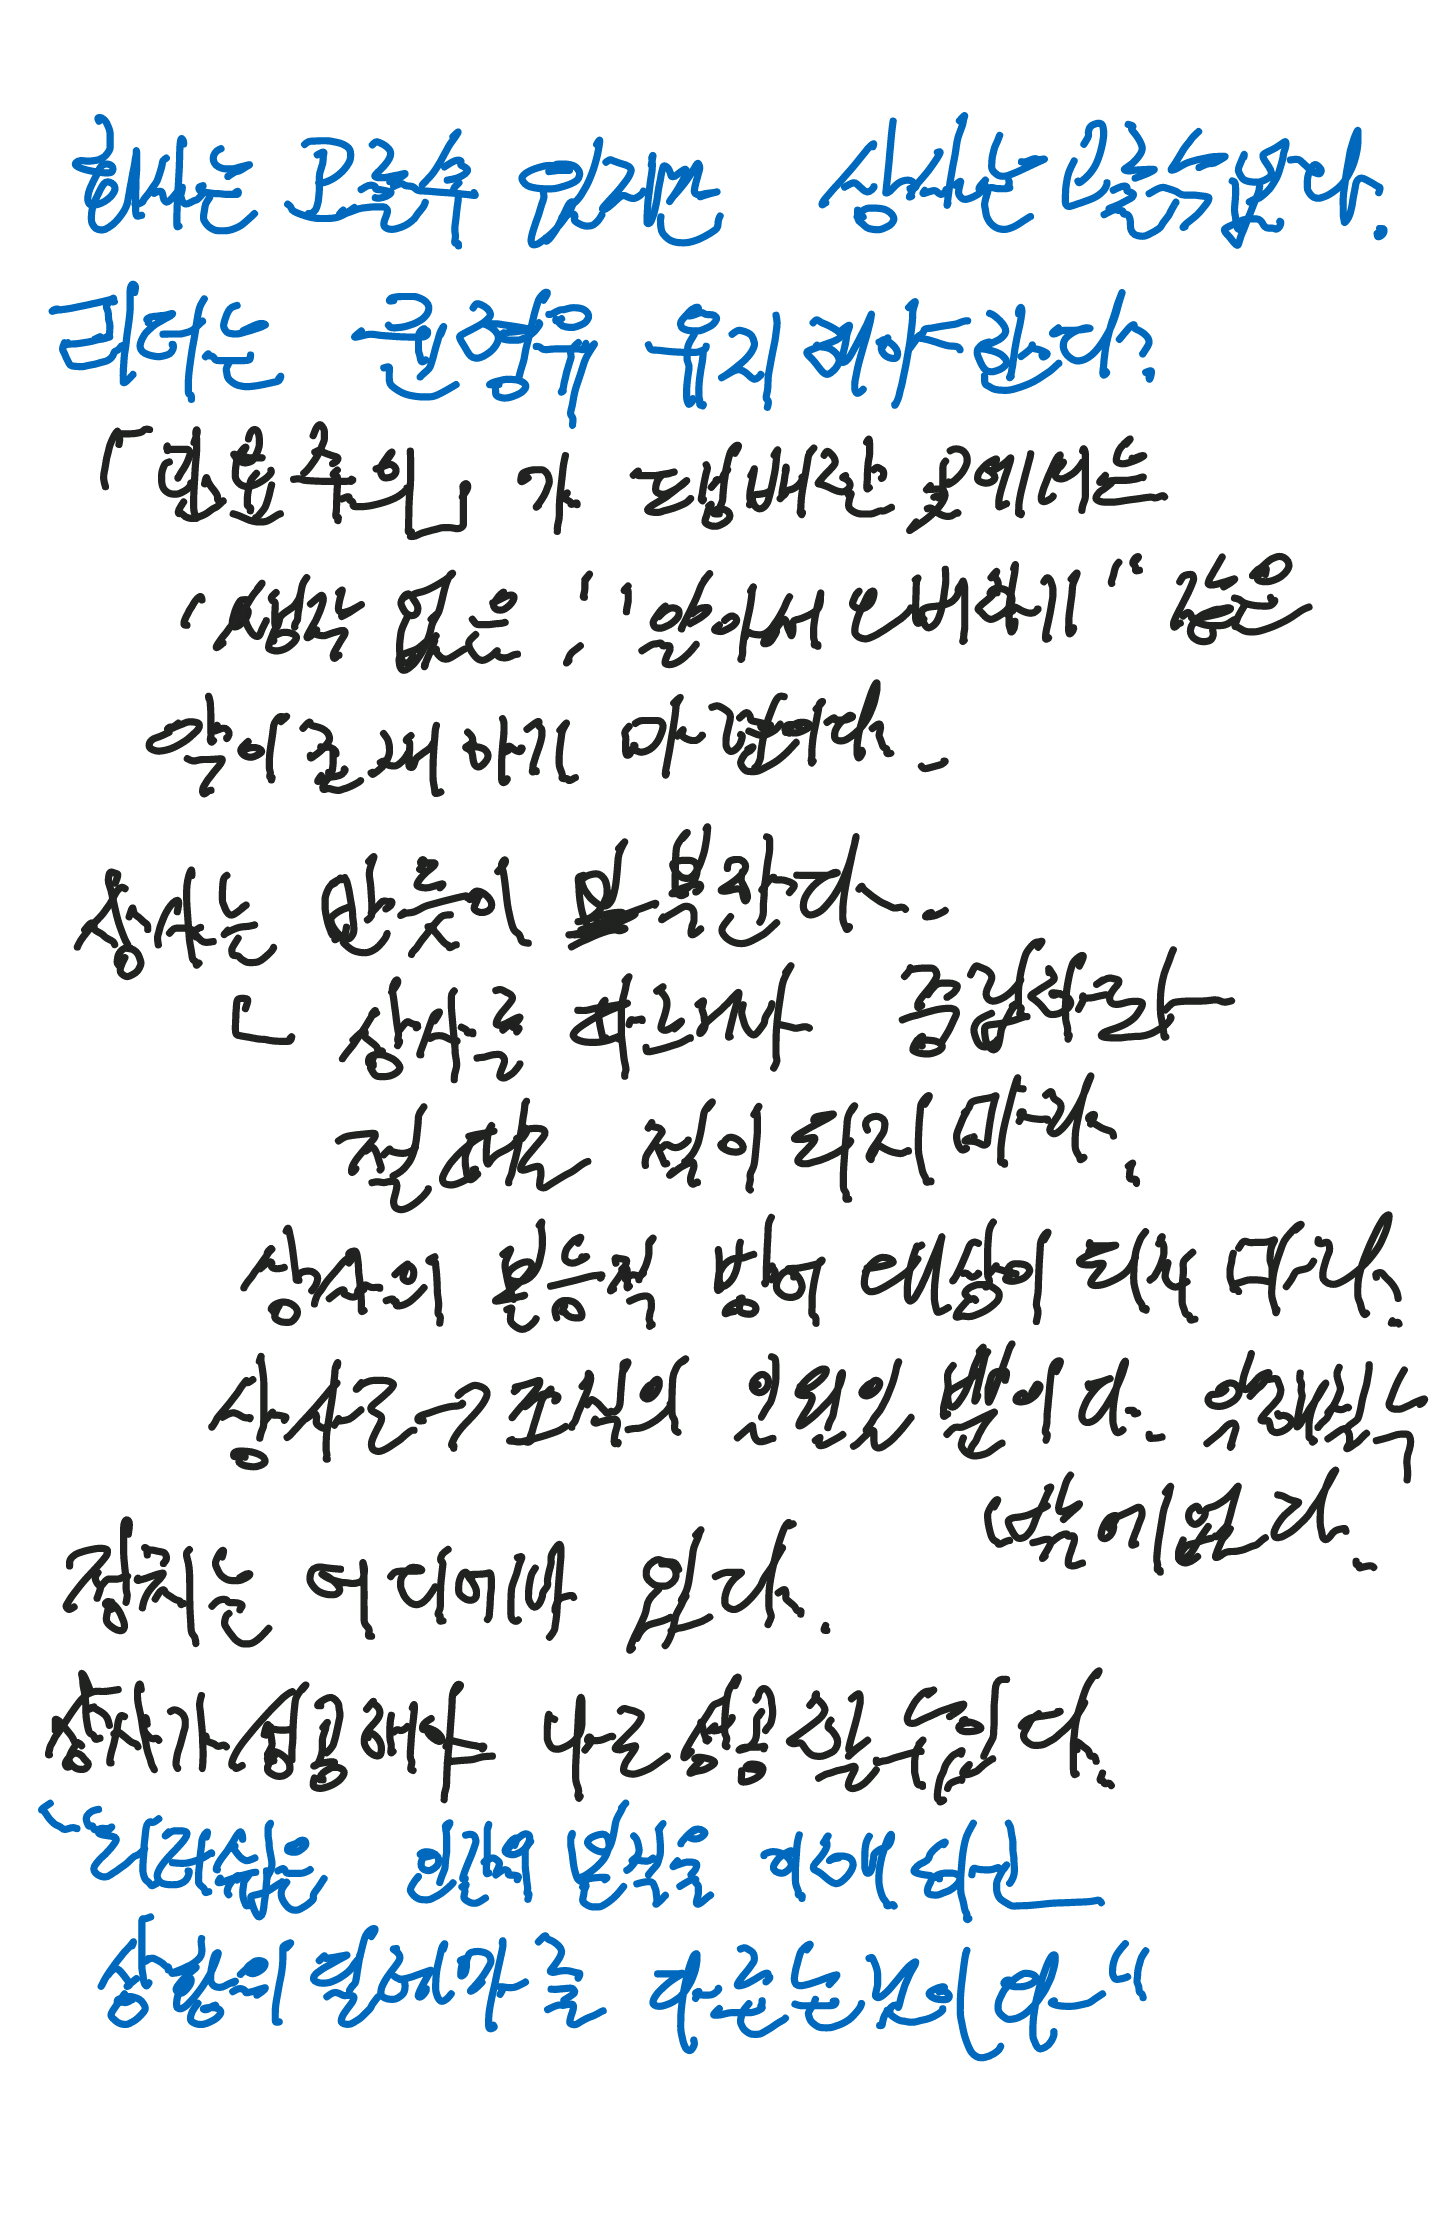 회사는 고를수 있지만 상사는 고를수없다.
리더는 균형을 유지해야한다.
「온정주의」가 팽배한 곳에서는
"생각 없는", "알아서 눈비비기" 같은
악이 존재하기 마련이다.
상사는 반드시 보복한다.
ㄴ 상사를 따르거나 공감하라
절대로 적이 되지 마라.
상사의 본능적 방어 대상이 되지 마라.
상사도 조직의 일원일 뿐이다. 외로울수
밖에없다.
정치는 어디에나 있다.
상사가 성공해야 나도 성공할 수있다.
"리더십은 인간의 본질을 이해하는
상황의 딜레마를 다루는것이다"